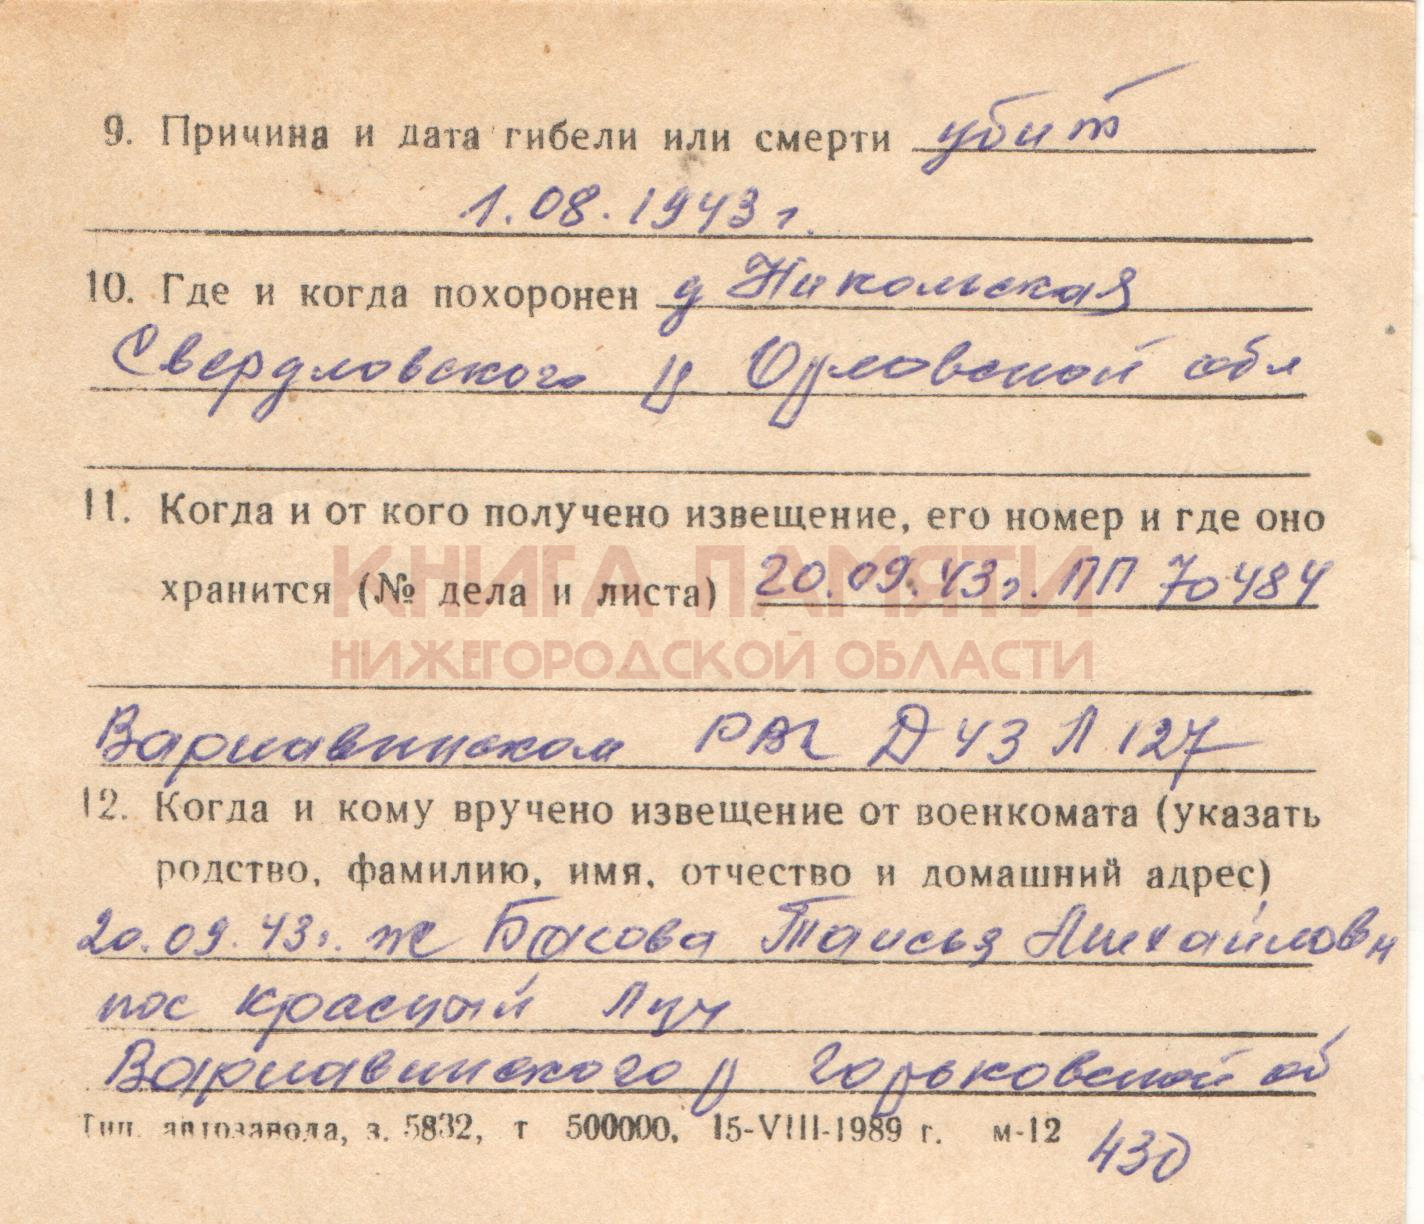 9. Причина и дата гибели или смерти убит
1.08.1943 г.
10. Где и когда похоронен д Никольская
Свердловского р Орловской обл
11. Когда и от кого получено извещение, его номер и где оно
хранится (№ дела и листа) 20.09.43г. ПП 70484
КНИГА ПАМЯТИ
НИЖЕГОРОДСКОЙ ОБЛАСТИ
Варнавинском РВК Д 43 Л 127
12. Когда и кому вручено извещение от военкомата (указать
родство, фамилию, имя, отчество и домашний адрес)
20.09.43г. ж Басова Таисья Михайловн
пос Красный Луч
Варнавинского р Горьковской об
Тип. автозавода, з. 5832, т 500000, 15-VIII-1989 г. м-12
430